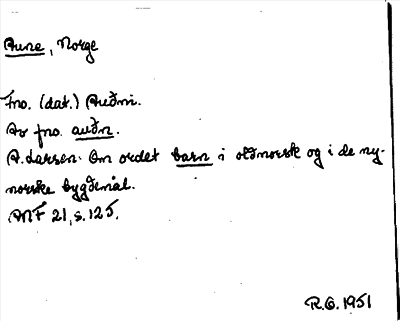 Aune, Norge
Fno. (dat.) Auðni.
Av fno. auðn.
A. Larsen: Om ordet barn i oldnorsk og i de ny-
norske bygdemål.
ANF 21, s. 125.
R.G. 1951